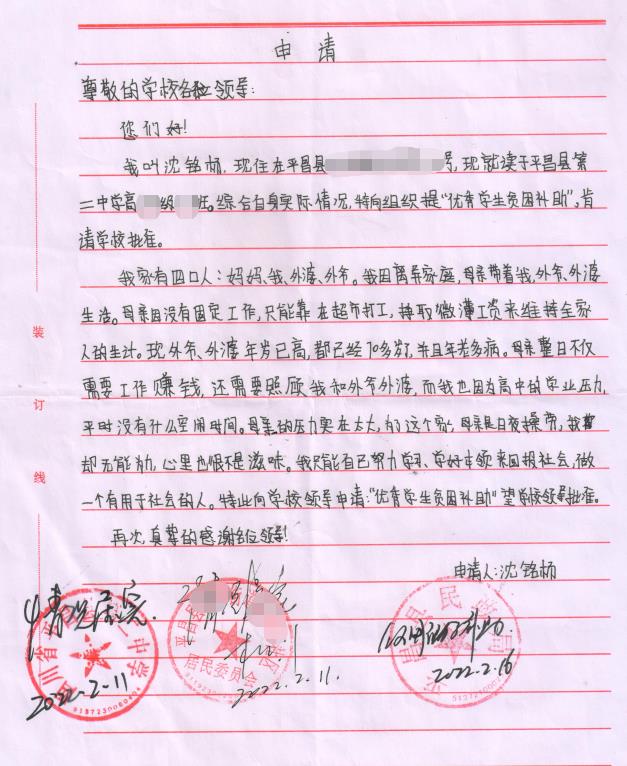 申请
尊敬的学校各位领导:
您们好!
我叫沈铭杨,现住在平昌县 号,现就读于平昌县第
二中学高 级 班。综合自身实际情况,特向组织提“优秀学生贫困补助”,肯
请学校批准。
我家有四口人:妈妈、我、外婆、外爷。我因离异家庭,母亲带着我,外爷、外婆
生活。母亲因没有固定工作,只能靠在超市打工,挣取微薄工资来维持全家
人的生计。现外爷、外婆年岁已高,都已经70多岁,并且年老多病。母亲整日不仅
需要工作赚钱,还需要照顾我和外爷外婆,而我也因为高中的学业压力,
平时没有什么空闲时间。母亲的压力实在太大,为了这个家,母亲是日夜操劳,我
却无能为力,心里也很不是滋味。我只能自己努力学习、学好本领来回报社会,做
一个有用于社会的人。特此向学校领导申请:“优秀学生贫困补助”望学校领导批准。
再次真挚的感谢各位领导!
申请人:沈铭杨
情况属实.
2022-2-11
居民委员会
2022.2.11.
2022.2.16
装
订
线